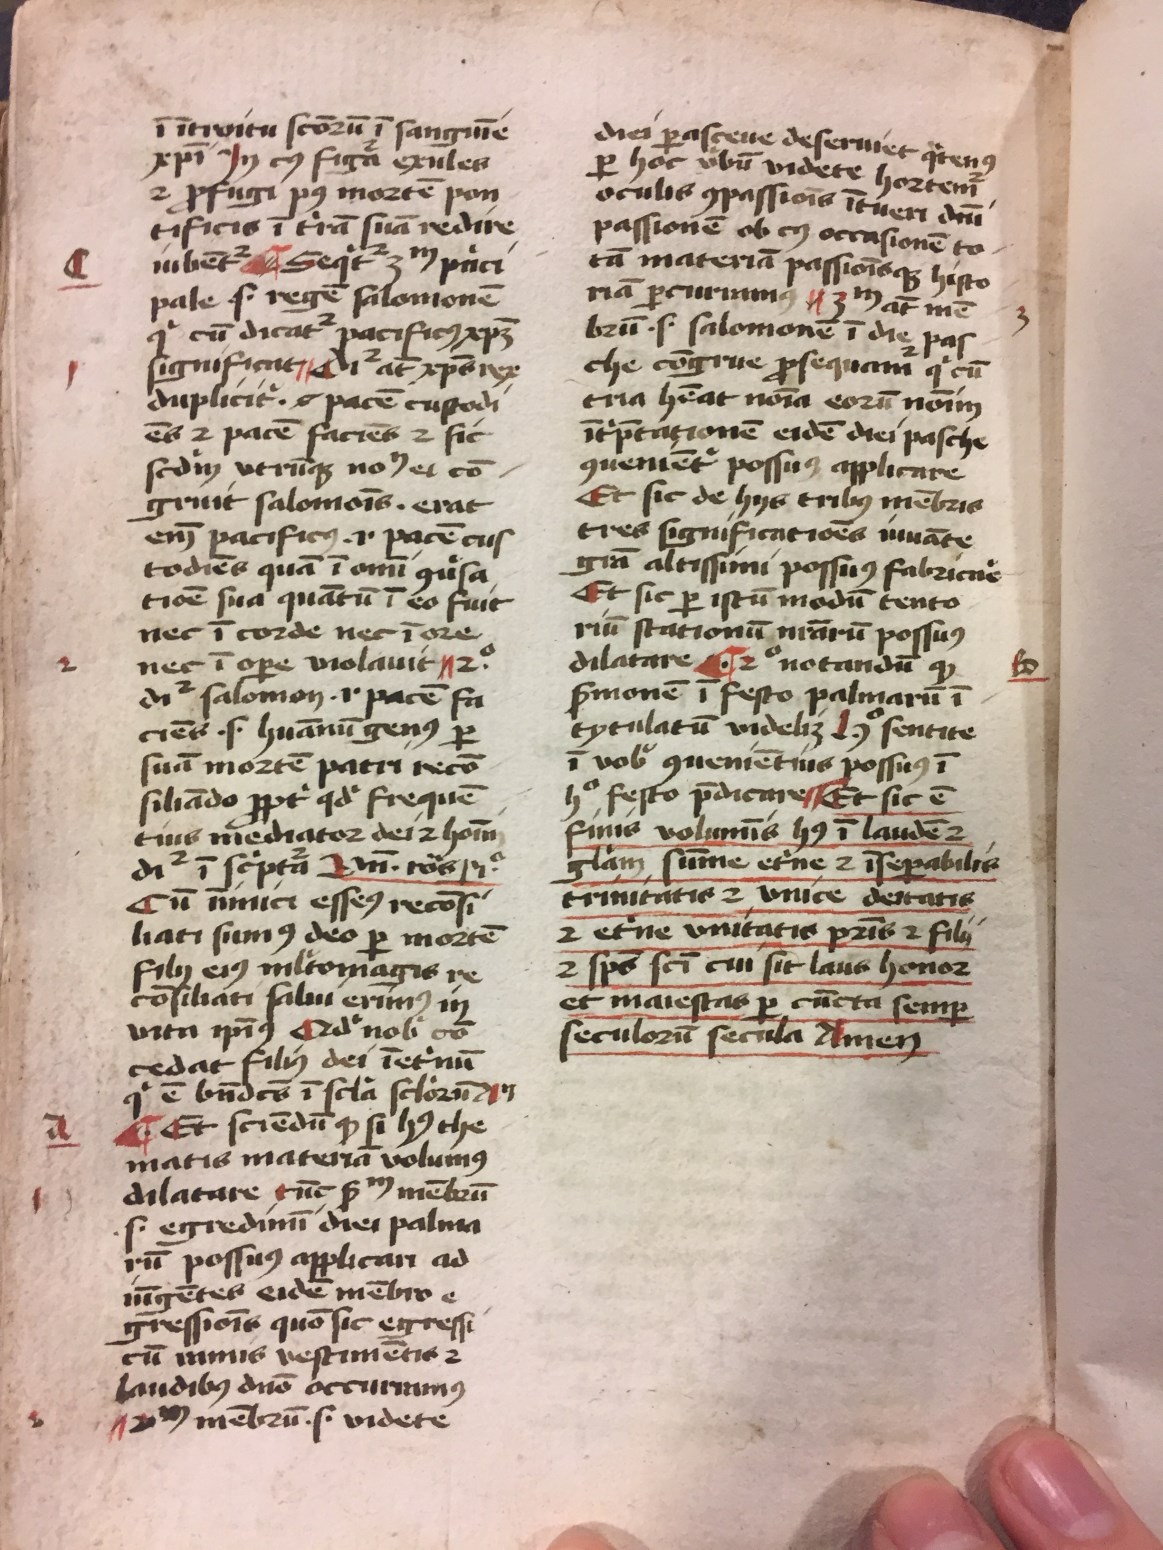 ī ītroitu scōrū ī sanguīe
xpī In cuꝰ figᵃ exules
⁊ ꝓfugi pꝰ mortē pon
tificis ī trā̄ suā redire
C
iubēt² Seqᵗ² 3ᵐ pⁿci
pale .s. regē salomonē
qⁱ cū dicat² pacificꝰ xpꝫ
1
significat Di² at̄ xp̄s rex
duplicit̉. s pacē custodi
ēs ⁊ pacē faciēs ⁊ sic
scd̄m vtrūqꝫ noⁿ ei cō
gruit salomōis. erat
em̄ pacificꝰ .i. pacē cus
todiēs quā ī om̄i ꝯu̓sa
tiōe sua quātū ī eo fuit
nec ī corde nec ī ore
2
nec ī oꝑe violauit 2.º
di² salomon .i. pacē fa
ciēs .s. huānū genꝰ ꝑ
suā mortē patri recō
siliādo ꝓpt̉ qd̓ frequē
tius mediator dei ⁊ hoīm
di² ī sc̓pt̄a Vn̄. ro̓s
Cū inīmici esseꝰ recōsi
liati sumꝰ deo ꝑ mortē
filij eiꝰ ml̓tomagis re
cōsiliati salui erimꝰ in
vita ip̄iꝰ Qd̓ nob̓ cō
cedat filiꝰ dei īet̓nū
qⁱ ē bn̄dc̄s ī scl̓a scl̓orū Am
A
Et sciēdū ꝙ si hꝰ the
matis materiā volumꝰ
1
dilatare tūc pᵐ mēbrū
.s. egredimī diei palma
rū possuꝰ applicari ad
iūgētes eidē mēbro e
gressiōis quō sic egressi
cū nimis vestimētis ⁊
laudibꝰ dnō occurrimꝰ
2
2ᵐ mēbrū .s. videte
diei ꝑasceue deseruiet qⁱtenꝰ
ꝑ hoc v̓bū videte hortem²
oculis ꝯpassiōis ītueri dnī
passionē ob cꝰ occasionē to
tā materiā passiōisqꝫ histo
riā ꝑcurrimꝰ 3ᵐ at̄ mē
3
brū .s. salomonē ī die pas
che cōgrue ꝓsequam² qⁱ cū
tria hēat noīa eorū noīm
īt̓p̄tationē eidē diei pasche
ꝯueniēt̓ possuꝰ applicare
Et sic de hijs tribꝰ mēbris
tres significatiōes iuuāte
grā altissimi possuꝰ fabricae̓
Et sic ꝑ istū modū tento
riū stationū nrārū possuꝰ
B
dilatare 2º notandū ꝙ
ẜmonē ī festo palmarū ī
tytulatū videliꝫ hº sentite
ī vob̓ ꝯueniētius possuꝰ ī
hº festo p̄dicare Et sic ē
finis volumīs hꝰ ī laudē ⁊
gl̓am sūme et̓ne ⁊ īseꝑabilis
trinitatis ⁊ vnice deitatis
⁊ et̓ne vnitatis pr̄is ⁊ filij
⁊ sp̄s sc̄i cui sit laus honor
et maiestas ꝑ cūcta semꝑ
seculorū secula Amen